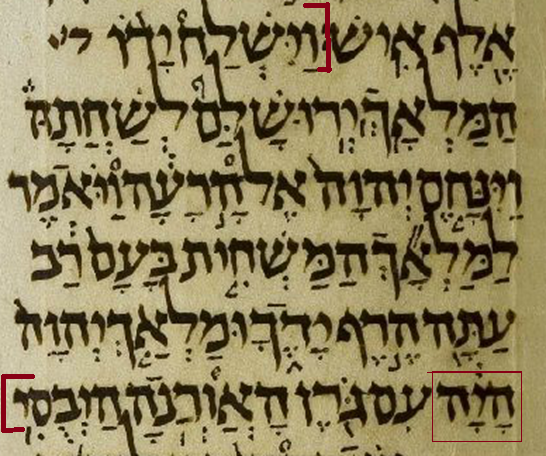 אֶלֶף אִישׁ וַיִּשְׁלַח יָדוֹ
הַמַּלְאָךְ יְרוּשָׁלַ͏ִם לְשַׁחֲתָהּ
וַיִּנָּחֶם יְהוָה אֶל הָרָעָה וַיֹּאמֶר
לַמַּלְאָךְ הַמַּשְׁחִית בָּעָם רַב
עַתָּה הֶרֶף יָדֶךָ וּמַלְאַךְ יְהוָה
הָיָה עִם גֹּרֶן הָאֲוַרְנָה הַיְבֻסִי